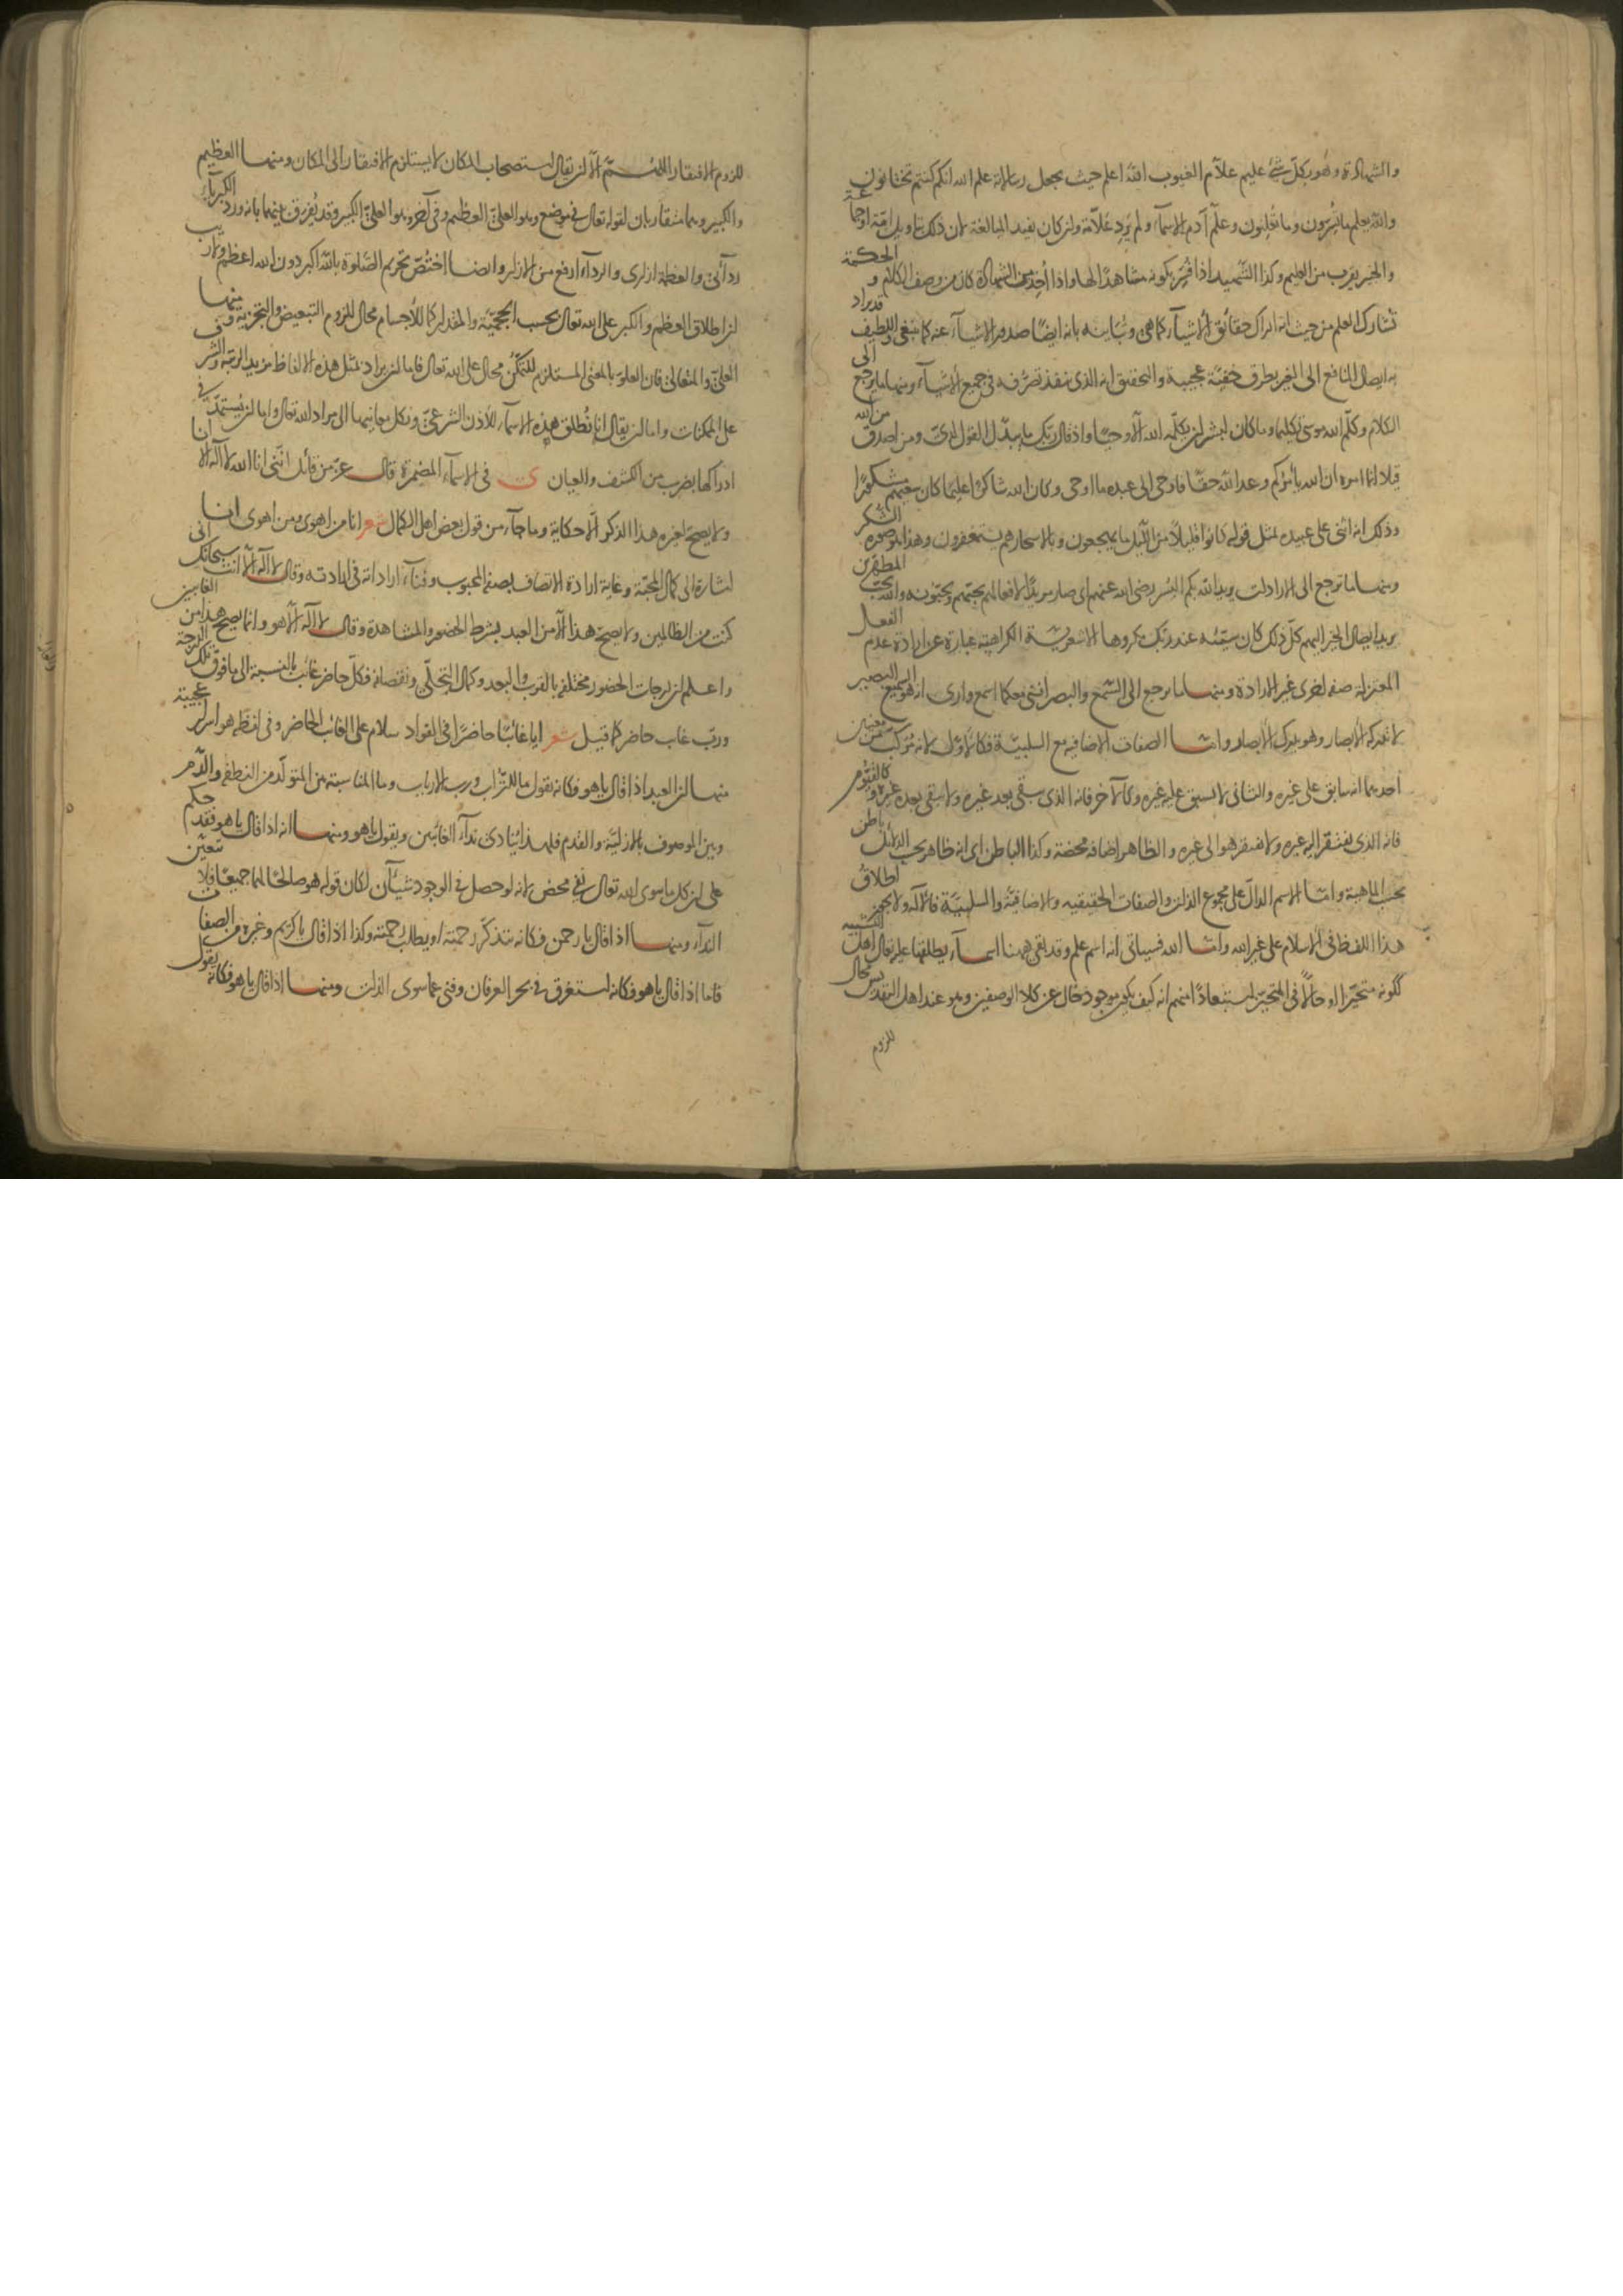 والشهادة وهو بكل شئ عليم علام الغيوب الله اعلم حيث يجعل رسالاته علم الله انكم كنتم تختانون
والله يعلم ما تسرون وما تعلنون وعلم آدم الاسماء ولم يرد علامة وان كان يفيد المبالغة لان ذلك بتاويل امة او جماعة
والخبر يقرب من العليم وكذا الشهيد اذا فسر بكونه مشاهدا لها واذا أخذ من الشهادة كان من وصف الكلام و الحكمة
تشارك العلم من حيث انه ادراك حقائق الاشياء كما هي وتباينه بانه ايضا صدور الاشياء عنه كما ينبغي واللطيف قد يراد
به ايصال المنافع الى الغير بطرق خفية عجيبة والتحقيق انه الذي ينفذ تصرفه في جميع الاشياء ومنها ما يرجع الى
الكلام وكلم الله موسى تكليما وما كان لبشر ان يكلمه الله الا وحيا واذ قال ربك ما يبدل القول لدي ومن اصدق من الله
قيلا انما امره ان الله يأمركم وعد الله حقا فاوحى الى عبده ما اوحى وكان الله شاكرا عليما كان سعيهم مشكورا
وذلك انه اثنى على عبيده بمثل قوله كانوا قليلا من الليل ما يهجعون وبالاسحار هم يستغفرون وهذا هو صورة الشكر
ومنها ما ترجع الى الارادات يريد الله بكم اليسر رضي الله عنهم اي صار مريدا لافعالهم يحبهم ويحبونه والله يحب المطهرين
يريد ايصال الخير اليهم كل ذلك كان سيئه عند ربك مكروها الاشعرية الكراهية عبارة عن ارادة عدم الفعل
المعتزلة صفة اخرى غير الارادة ومنها ما يرجع الى السمع والبصر انني معكما اسمع وارى انه هو السميع البصير
لا تدركه الابصار وهو يدرك الابصار واما الصفات الاضافية مع السلبية فكالاول لانه مركب من معنيين
احديهما انه سابق على غيره والثاني لا يسبق عليه غيره وكالآخر فانه الذي يبقى بعد غيره ولا يبقى بعده غيره وكالقيوم
فانه الذي يفتقر اليه غيره ولا يفتقر هو الى غيره والظاهر اضافة محضة وكذا الباطن اي انه ظاهر بحسب الدلائل باطن
بحسب الماهية واما الاسم الدال على مجموع الذات والصفات الحقيقيه والاضافية والسلبية فالاله ولا يجوز اطلاق
هذا اللفظ في الاسلام على غير الله واما الله فسيأتي انه اسم علم وقد بقي ههنا اسماء يطلقها عليه تعالى اهل التشبيه
ككونه متحيزا او حالا في المتحيز استبعادا منهم انه كيف يكون موجود خال عن كلا الوصفين وهو عند اهل التقديس محال
للزوم
للزوم الافتقار اللهم الا ان يقال استصحاب المكان لا يستلزم الافتقار الى المكان ومنها العظيم
والكبير وهما متقاربان لقوله تعالى في موضع وهو العلي العظيم وفي آخر وهو العلي الكبير وقد يفرق بينهما بانه ورد الكبرياء
ردائي والعظمة ازاري والرداء ارفع من الازار وايضا اختص تحريم الصلوة بالله اكبر دون الله اعظم
ان اطلاق العظيم والكبير على الله تعالى بحسب الحجمية والمقدار كما للاجسام محال للزوم التبعيض والتجزية ومنها
العلي والمتعالي فان العلو بالمعنى المستلزم للتمكن محال على الله تعالى فاما ان يراد بمثل هذه الالفاظ مزيد الرتبة والشرف
على الممكنات واما ان يقال انا نطلق هذه الاسماء للاذن الشرعي ونكل معانيها الى مراد الله تعالى واما ان يستمد في
ادراكها بضرب من الكشف والعيان ى في الاسماء المضمرة قال عز من قائل انني انا الله لا اله الا انا
ولا يصح لغيره هذا الذكر الا حكاية وما جاء من قول بعض اهل الكمال شعر انا من اهوى ومن اهوى انا
اشارة الى كمال المحبة وغاية ارادة الاتصاف بصفة المحبوب وفناء اراداته في ارادته وقال لا اله الا انت سبحانك اني
كنت من الظالمين ولا يصح هذا الا من العبد بشرط الحضور والمشاهدة وقال لا اله الا هو وانما يصح هذا من الغايبين
واعلم ان درجات الحضور مختلفة بالقرب والبعد وكمال التجلي ونقصانه فكل حاضر غائب بالنسبة الى ما فوق تلك الدرجة
ورب غاب حاضر كما قيل شعر ايا غائبا حاضرا في الفواد سلام على الغائب الحاضر وفي لفظة هو اسرار عجيبة
منها ان العبد اذا قال يا هو فكانه يقول ما للتراب ورب الارباب وما المناسبة من المتولد من النطفة والدم
وبين الموصوف بالازلية والقدم فلهذا ينادى نداء الغائبين ويقول يا هو ومنها انه اذا قال يا هو فقد حكم
على ان كل ما سوى الله تعالى نفي محض لانه لو حصل في الوجود شيآن لكان قوله هو صالحا لهما جميعا فلا تعين
النداء ومنها اذا قال يا رحمن فكانه يتذكر رحمته او يطلب رحمته وكذا اذا قال يا كريم وغيره من الصفات
فاما اذا قال يا هو فكانه استغرق في بحر العرفان وفني عما سوى الذات ومنها اذا قال يا هو فكانه يقول